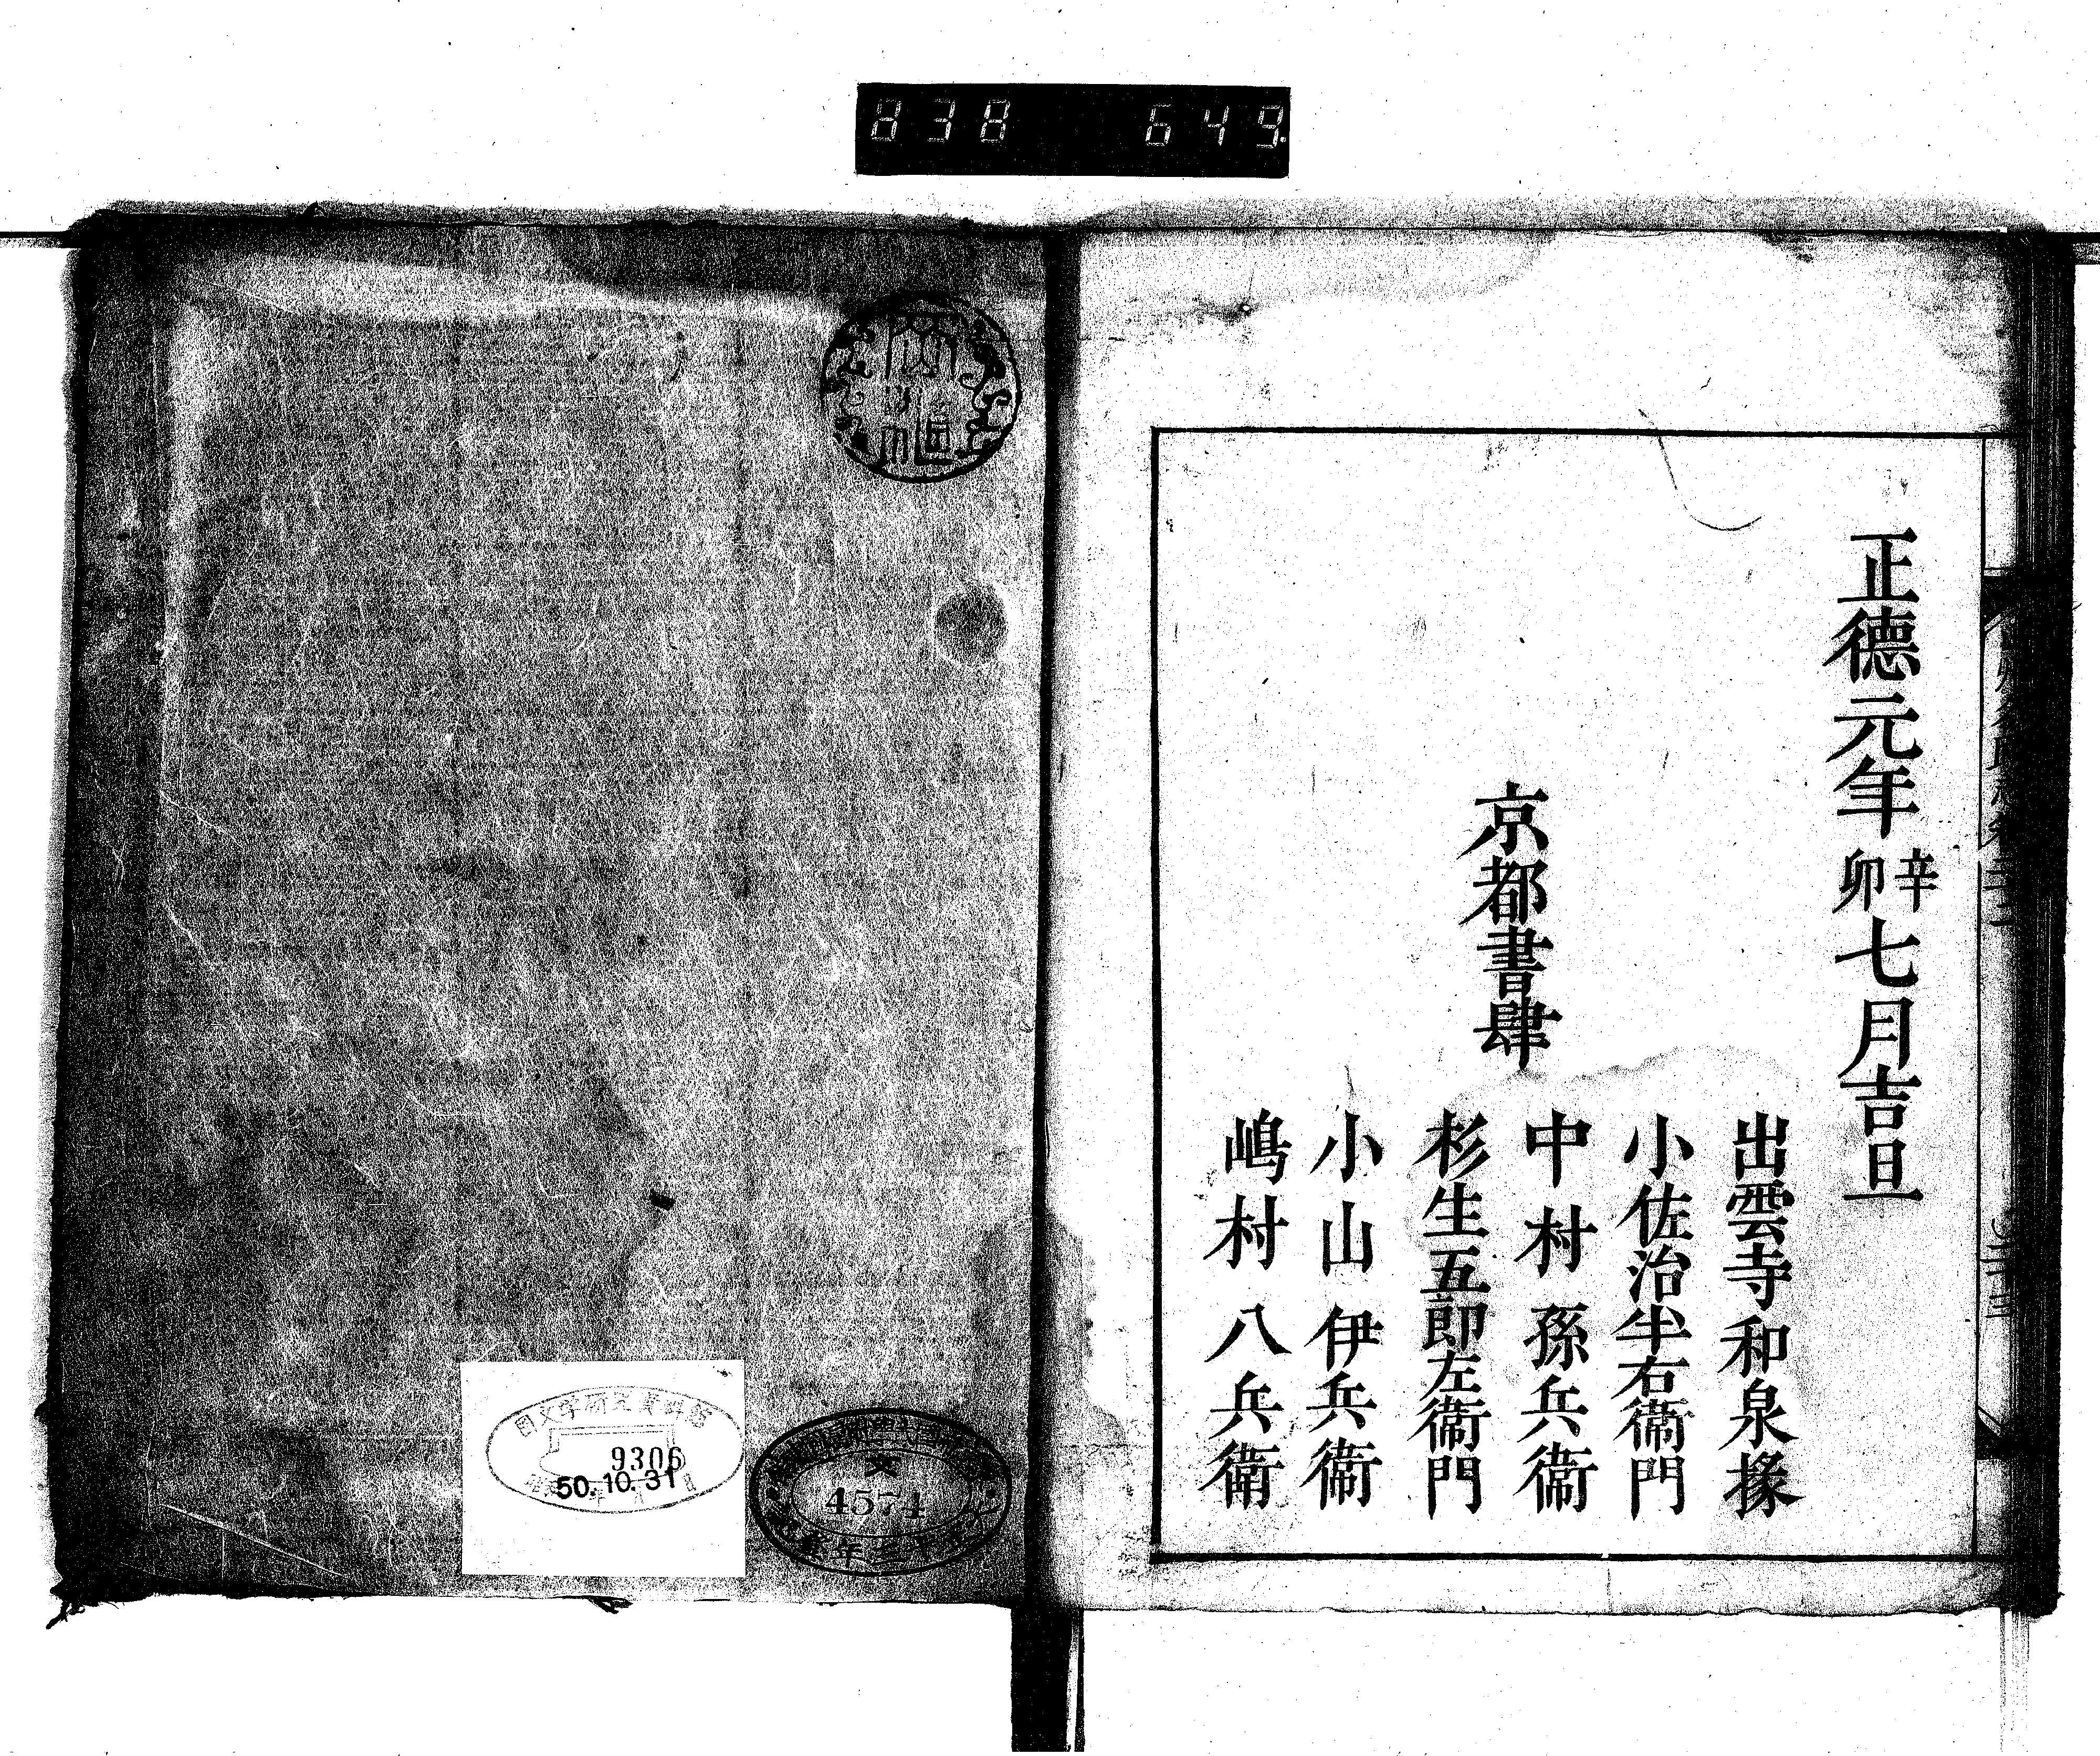 838 649
正德元年辛卯七月吉旦
京都書肆
出雲寺和泉掾
小佐治半右衞門
中村孫兵衞
杉生五郎左衞門
小山伊兵衞
嶋村八兵衞
國文学研究資料館
9306
50.10.31
文
4574